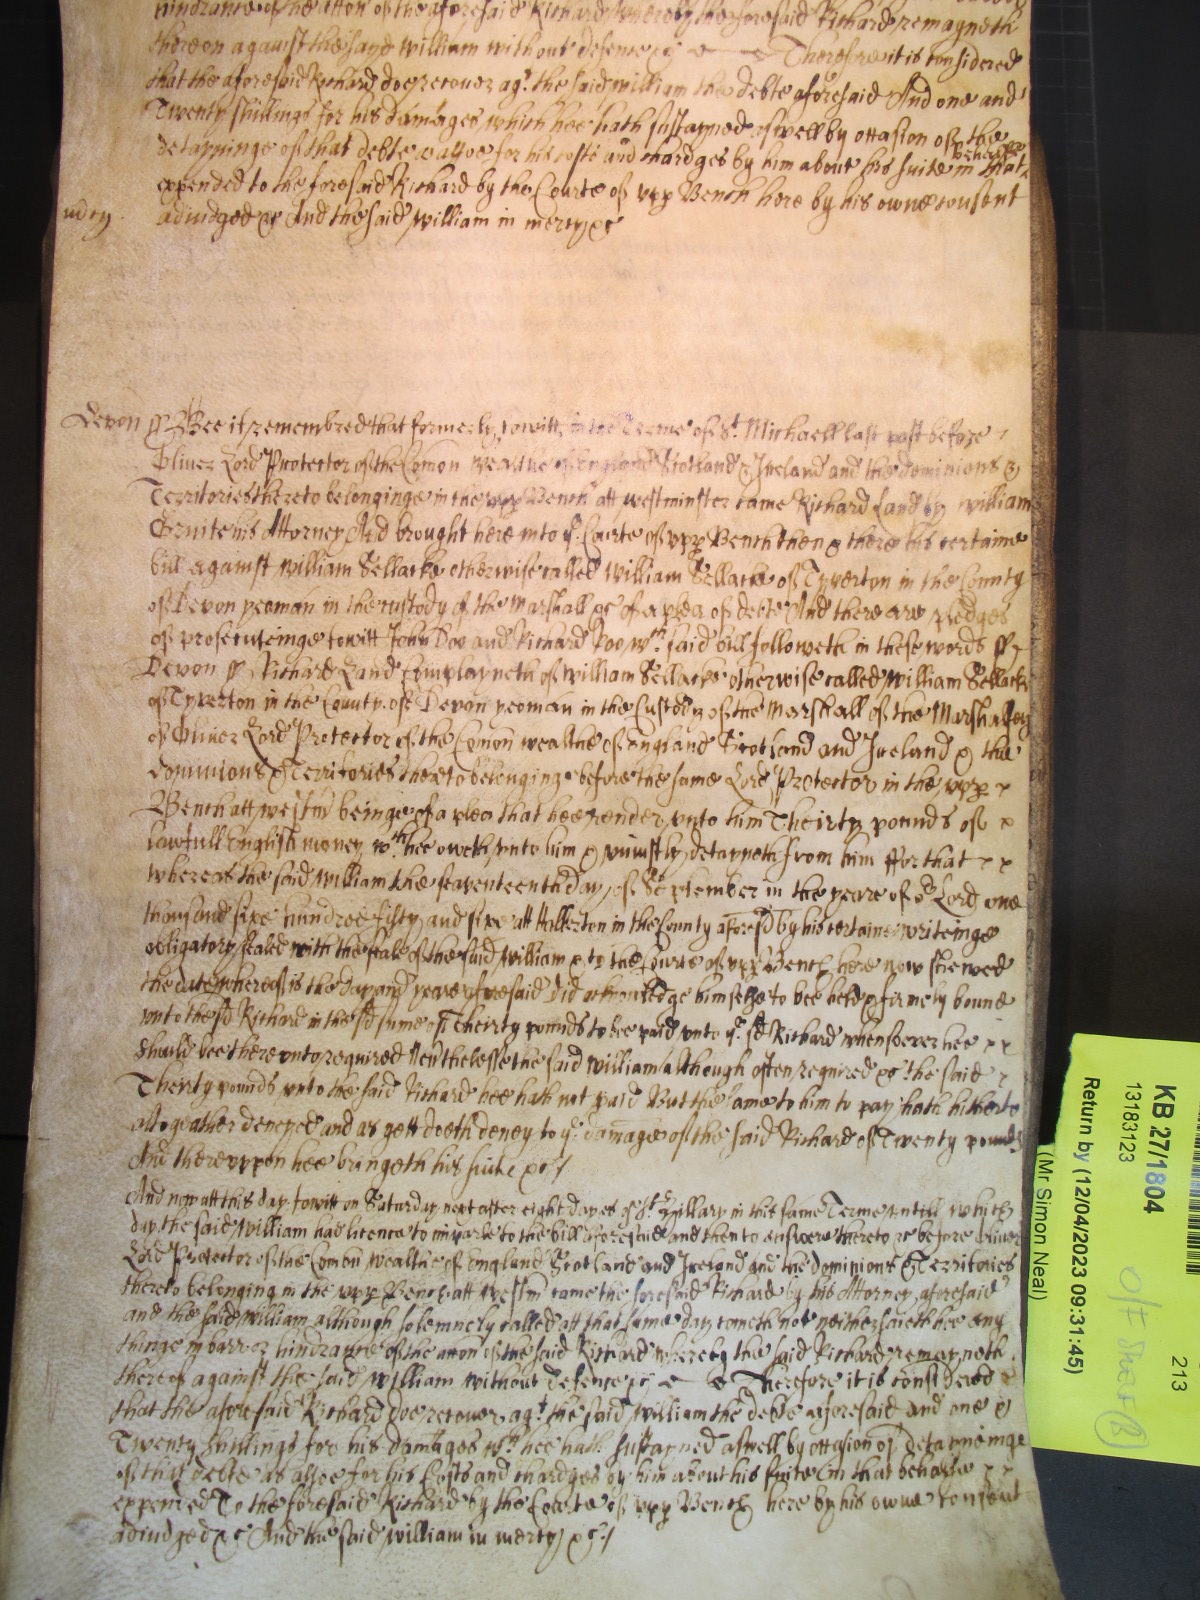 hindrance of the accon of the aforesaid Richard whereby the foresaid Richard remayneth
thereon against the said William without defence &c Therefore it is considered
that the aforesaid Richard doe recover agt. the said William the debte aforesaid And one and
Twenty shillings for his damages which hee hath sustayned aswell by occasion of the
detayninge of that debte as alsoe for his costs and chardges by him about his suite in that
behalfe
expended to the foresaid Richard by the Courte of upp Bench here by his owne consent
adiudged &c And the said William in mercy &c
Devon ss Bee it remembred that formerly, towitt, in the Terme of St. Michaell last past before
Oliver Lord Protector of the Comon wealthe of England Scotland & Ireland and the dominions &
Territories thereto belonginge in the upp Bench att Westminster came Richard Land by William
his Attorney And brought here into ye. Courte of upp Bench then & there his certaine
bill against William Sellacke otherwise called William Sellacke of Tyverton in the County
of Devon yeoman in the custody of the Marshall &c of a plea of debte And there are pledges
of prosecuteinge towitt John Doo and Richard Roo wch. said bill followeth in these words ss
Devon ss Richard Land Complayneth of William Sellacke otherwise called William Sellacke
of Tyverton in the County of Devon yeoman in the Custody of the Marshall of the Marshalsey
of Oliver Lord Protector of the Comon wealthe of England Scotland and Ireland & the
dominions & Territories thereto belonginge before the same Lord Protector in the upp
Bench att Westm beinge of a plea that hee render unto him Theirty pounds of
lawfull English money wch. hee oweth unto him & uniustly detayneth from him ffor that
whereas the said William the seaventeenth day of September in the yeare of or. Lord one
thousand sixe hundred fifty and sixe att Halberton in the County aforesd by his certaine writeinge
obligatory sealed with the seale of the said William & to the Courte of upp Bench here now shewed
the date whereof is the day and yeare aforesaid did acknowledge himselfe to bee held & firmely bound
unto the sd Richard in the sd sume of Theirty pounds to bee paid unto ye. sd Richard whensoever hee
should bee thereunto required Neverthelesse the said William although often required &c the said
Theirty pounds unto the said Richard hee hath not paid But the same to him to pay hath hitherto
altogeather denyed and as yett doeth deney to ye. damage of the said Richard of Twenty pounds
And thereuppon hee bringeth his suite &c
And now att this day towitt on Saturday next after eight dayes of St. Hillary in this same Terme untill which
day the said William had licence to imparle to the bill aforesaid and then to answere thereto &c before Oliver
Lord Protector of the Comon wealthe of England Scotland and Ireland and the dominions & Territories
thereto belonging in the upp Bench att Westm came the foresaid Richard by his Attorney aforesaid
and the said William although solemnely called att that same day cometh not neither saieth hee any
thinge in barr or hindrance of the accon of the said Richard whereby the said Richard remayneth
thereof against the said William without defence &c Therefore it is considered
that the aforesaid Richard doe recover agt. the said William the debte aforesaid and one &
Twenty shillings for his damages wch. hee hath sustayned aswell by occasion of detayneinge
of that debte as alsoe for his Costs and chardges by him about his suite in that behalfe
expended To the foresaid Richard by the Courte of upp Bench here by his owne consent
adiudged &c And the said William in mercy &c
KB 27/1804
13183123
Return by (12/04/2023 09:31:45)
(Mr Simon Neal)
213